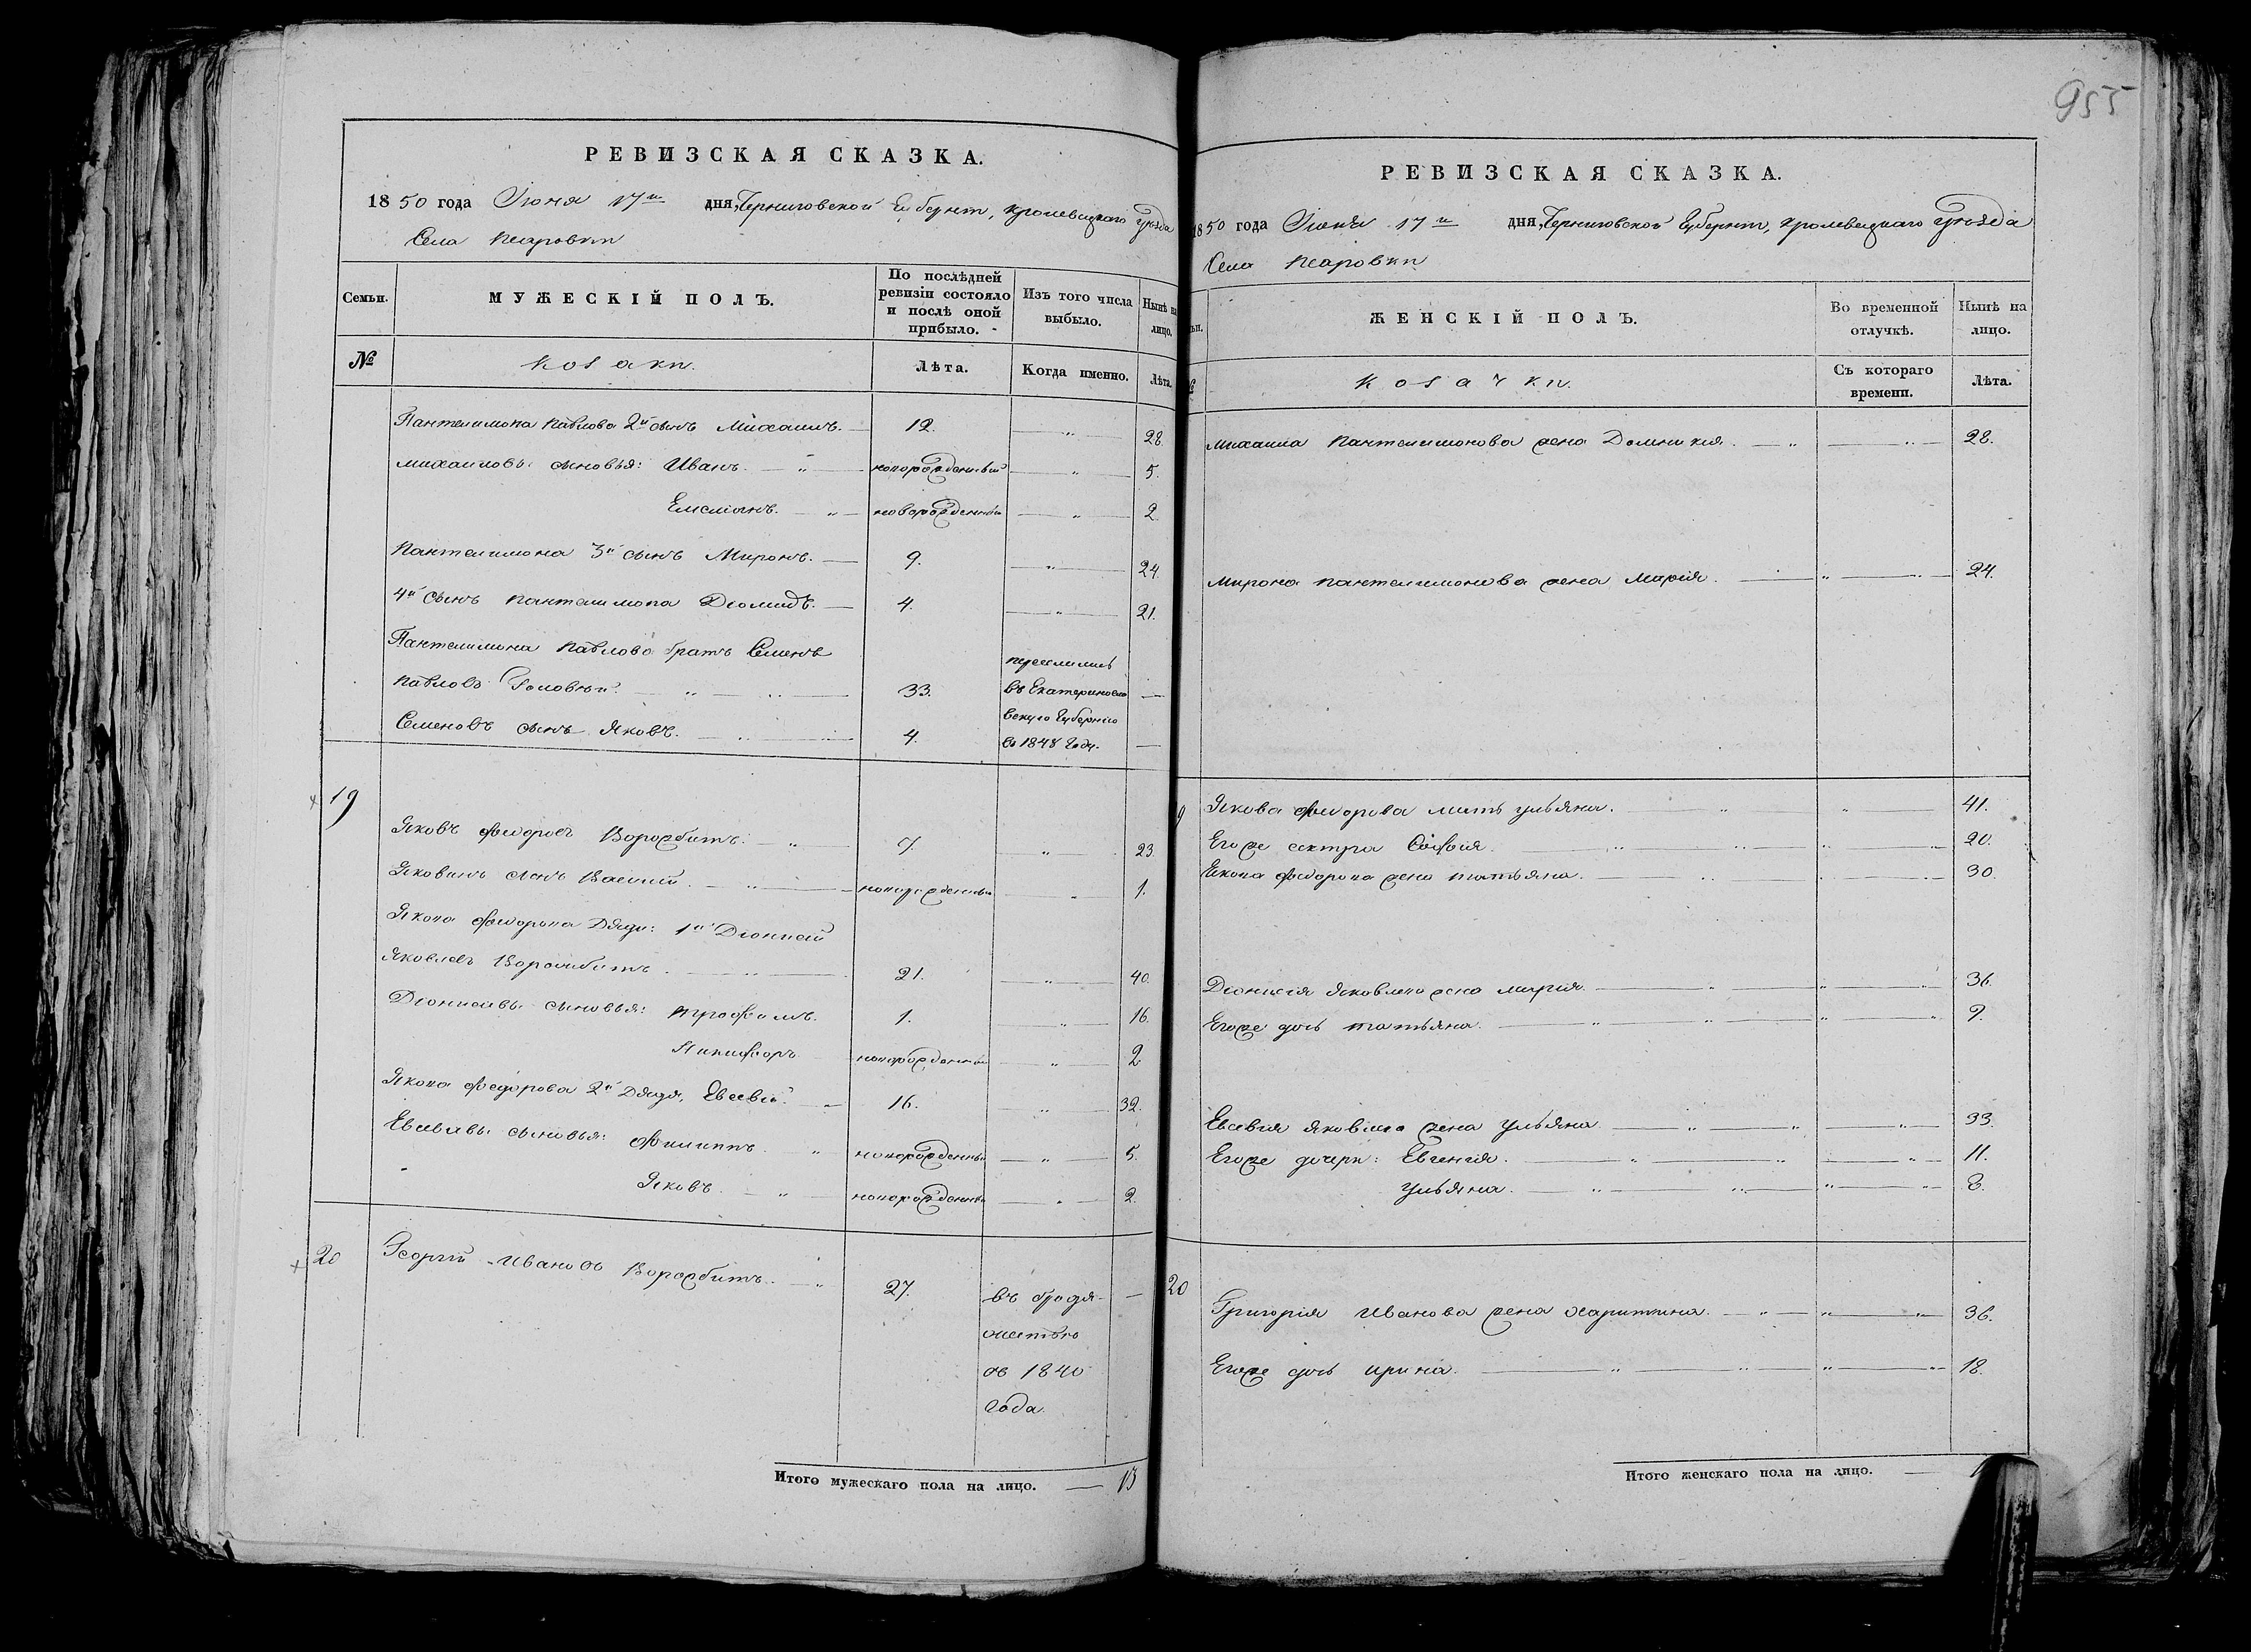 955
РЕВИЗСКАЯ СКАЗКА.
1850 года Іюня 17го дня, Черниговской Губерніи, Кролевецкаго уѣзда
Села
Семьи.
МУЖЕСКІЙ ПОЛЪ.
По послѣдней ревизіи состояло и послѣ оной прибыло.
Изъ того числа выбыло.
Нынѣ на лицо.
№
Козаки.
Лѣта.
Когда именно.
Лѣта.
Пантелимона Павлова 2й сынъ Михаилъ. 12. 28.
Михаиловы сыновья: Иванъ. новорожденный 5.
Емеліанъ. новорожденный 2.
Пантелимона 3й сынъ Миронъ. 9. 24.
4й сынъ Пантелимона Діомидъ. 4. 21.
Пантелимона Павлова братъ Семенъ
Павловъ 33.
Семеновъ сынъ Яковъ. 4.
переселились
въ Екатеринослав
скую Губернію
въ 1848 году.
19
Яковъ Федоровъ Ворожбитъ. 7. 23.
Яковинъ сынъ Василій. новорожденный 1.
Якова Федорова Дяди: 1й Діонисій
Яковлевъ Ворожбитъ. 21. 40.
Діонисіевы сыновья: Трофимъ. 1. 16.
Никифоръ. новорожденный 2.
Якова Федорова 2й Дядя, Евсевій. 16. 32.
Евсевіевы сыновья: Филиппъ. новорожденный 5.
Яковъ. новорожденный 2.
20
Георгій Ивановъ Ворожбитъ. 27.
въ бродя-
жествѣ
съ 1840
Года.
Итого мужескаго пола на лицо. 13
РЕВИЗСКАЯ СКАЗКА.
1850 года Іюня 17го дня, Черниговской Губерніи, Кролевецкаго уѣзда
Села
ЖЕНСКІЙ ПОЛЪ.
Во временной отлучкѣ.
Нынѣ на лицо.
Козачки.
Съ котораго времени.
Лѣта.
Михаила Пантелимонова жена Домникія. 28.
Мирона Пантелимонова жена Марія. 24.
Якова Федорова мать Ульяна. 41.
Егоже сестра Софія. 20.
Якова Федорова жена Татьяна. 30.
Діонисія Яковлева жена Марія. 36.
Егоже дочь Татьяна. 9.
Евсевія Яковлева жена Ульяна. 33.
Егоже дочери: Евгенія. 11.
Ульяна. 8.
20
Григорія Иванова жена Харитина. 36.
Егоже дочь Ирина. 18.
Итого женскаго пола на лицо.